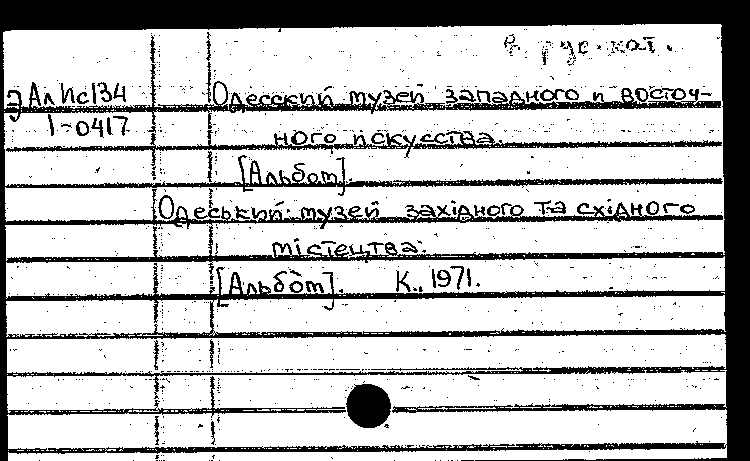 в рус. кат.
ЭАлИс134
1-0417
Одесский музей западного и восточ-
ного искусства.
[Альбом].
Одеський музей західного та східного
містецтва.
[Альбом]. К., 1971.